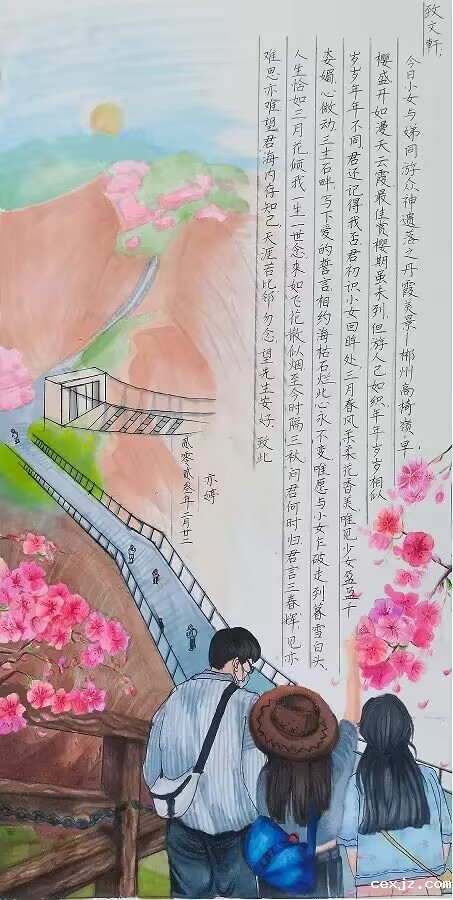 致文軒:
今日小女与娣同游众神遗落之丹霞美景—郴州高椅嶺,早
樱盛开如漫天云霞最佳赏樱期虽未到,但游人已如织年年岁岁相似
岁岁年年不同君还记得我否君初识小女回眸处,三月春风柔柔花香美唯见少女盈盈千
姿媚,心微动,三生石畔,写下爱的誓言,相约海枯石烂此心永不变唯愿与小女乍破走到暮雪白头
人生恰如三月花倾我一生一世念来如飞花散似烟至今时隔三秋,问君何时归君言三春辉,见亦
难思亦难望君海内存知己,天涯若比邻勿念,望先生安好,致此
亦婷
贰零贰叁年二月廿二
cexjz.com